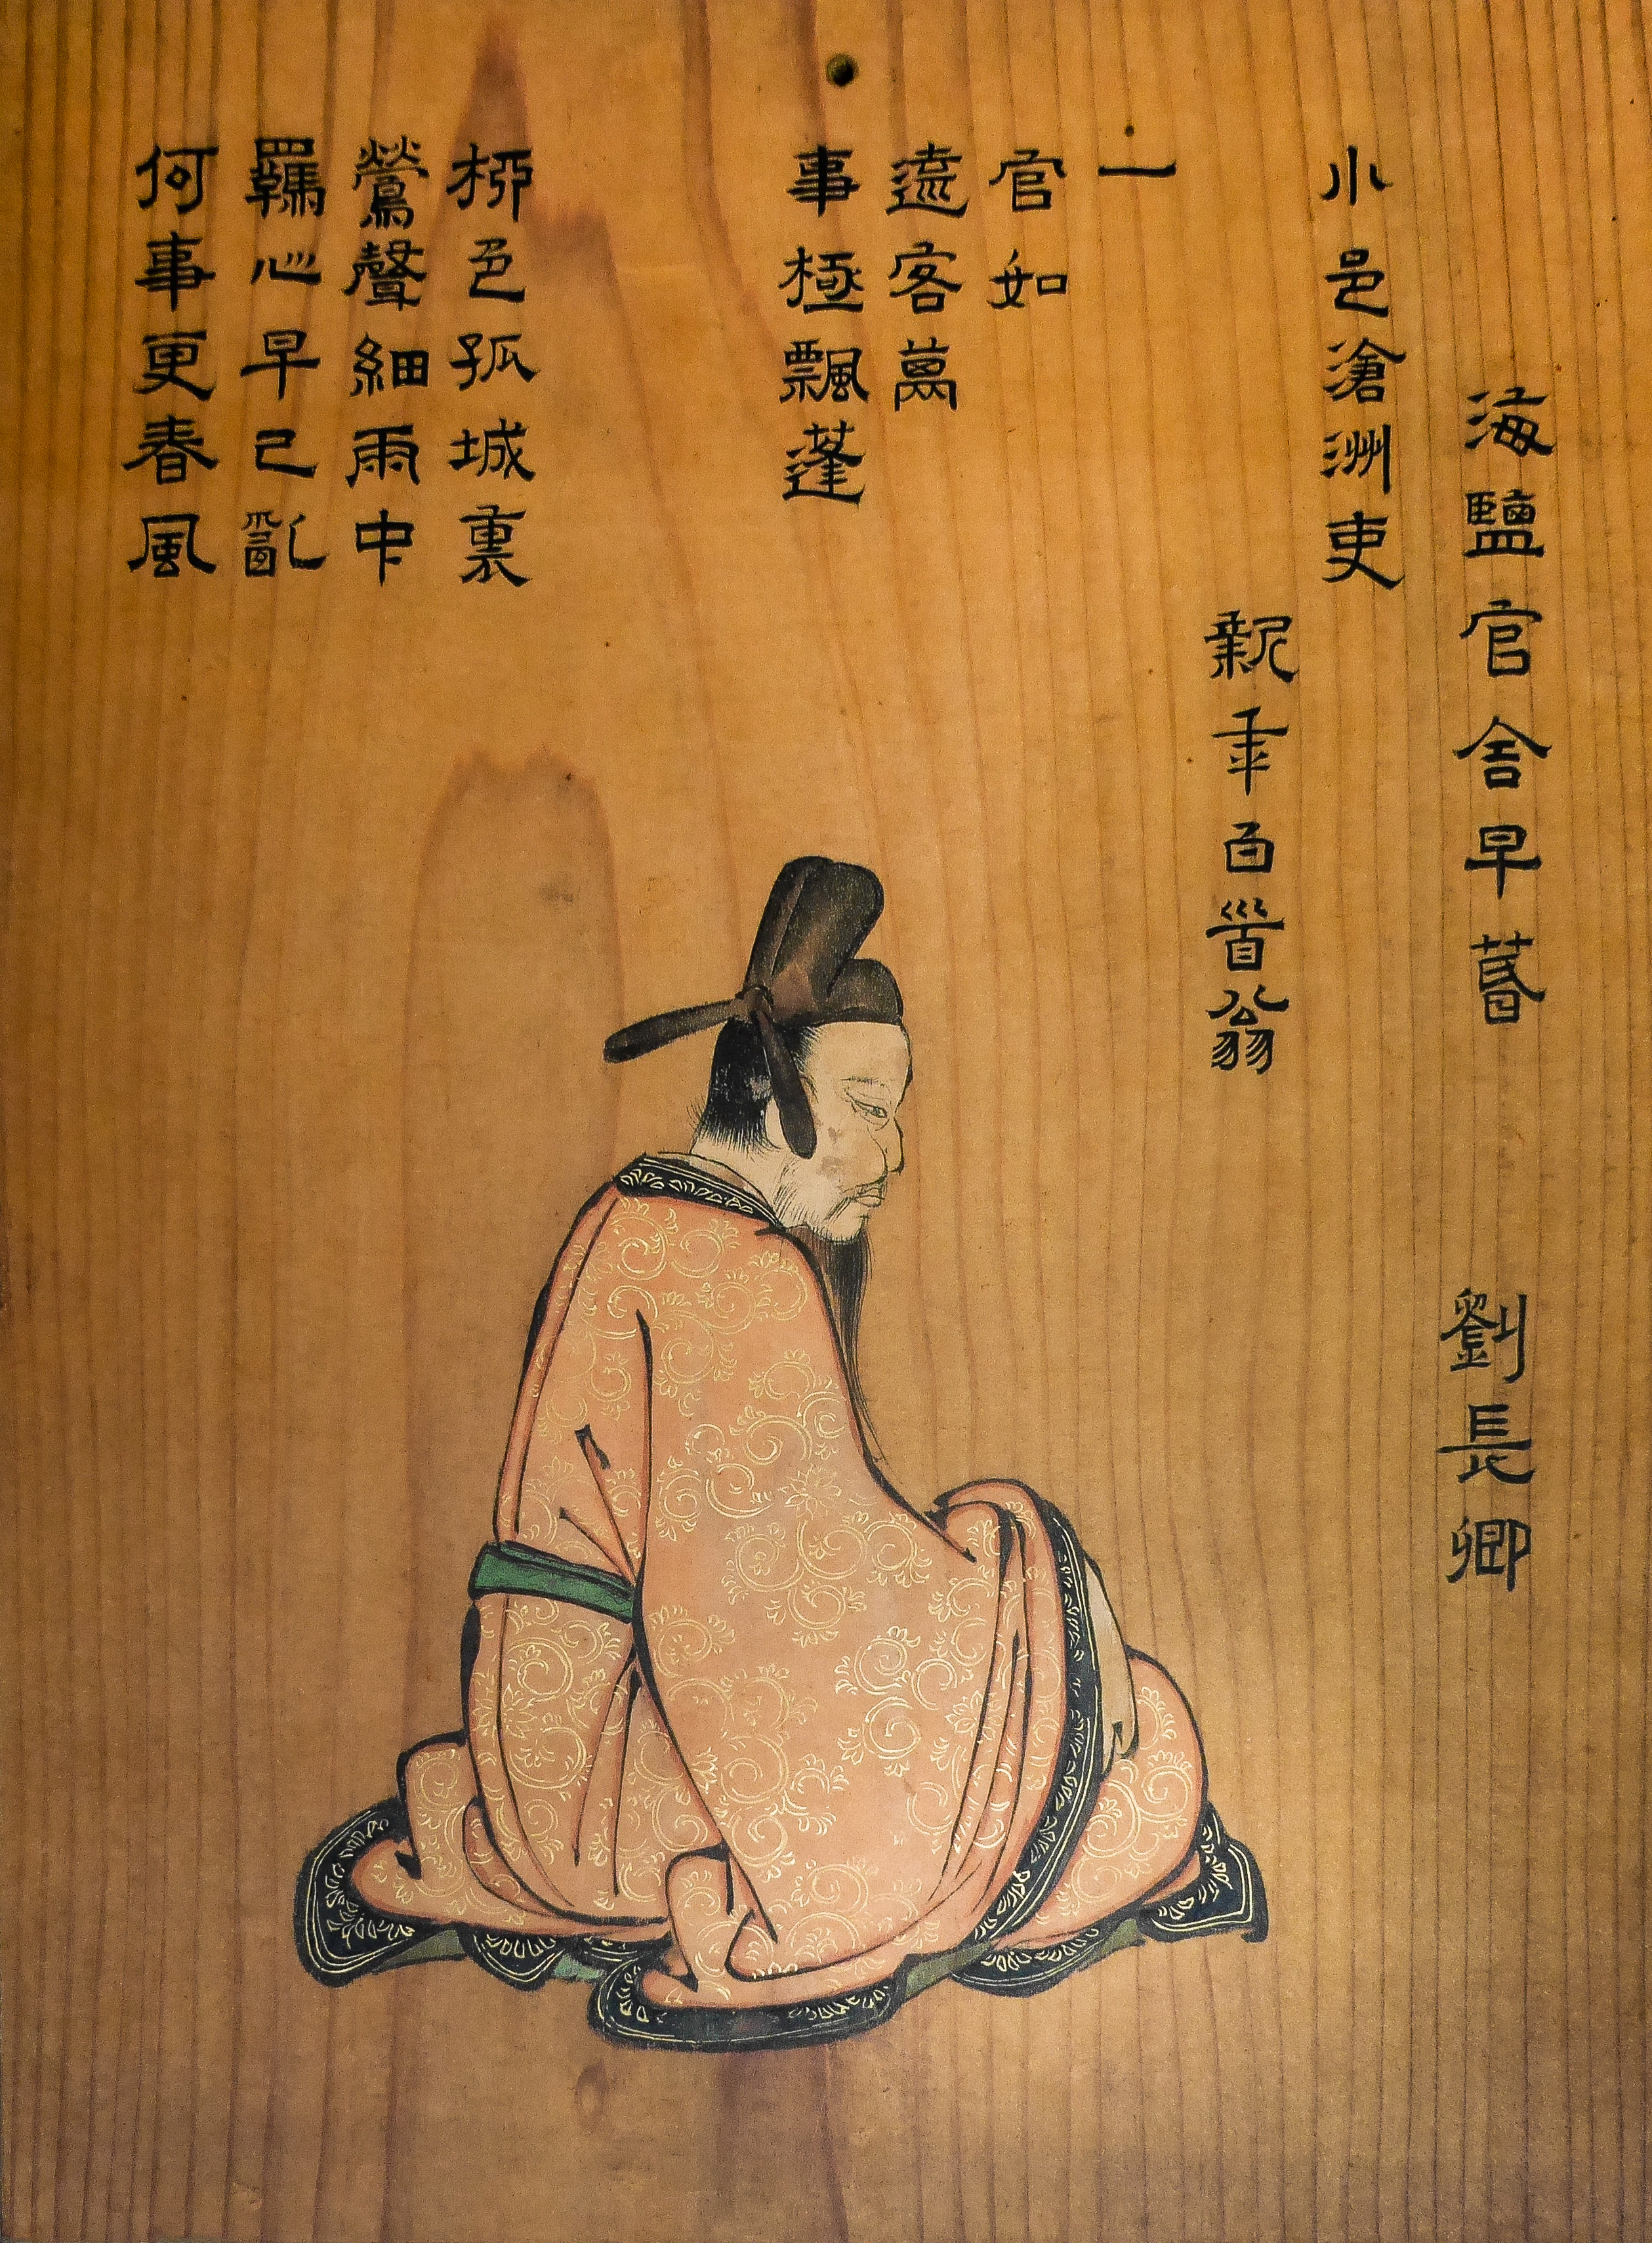 海鹽官舍早春 劉長卿
小邑滄洲吏
新年白首翁
一
官如
遠客萬
事極飄蓬
柳色孤城裏
鶯聲細雨中
羈心早已亂
何事更春風